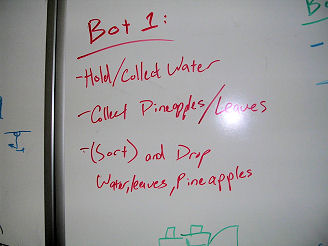 Bot 1:
-Hold/Collect Water
-Collect Pineapples/Leaves
-(Sort) and Drop
Water, leaves, Pineapples